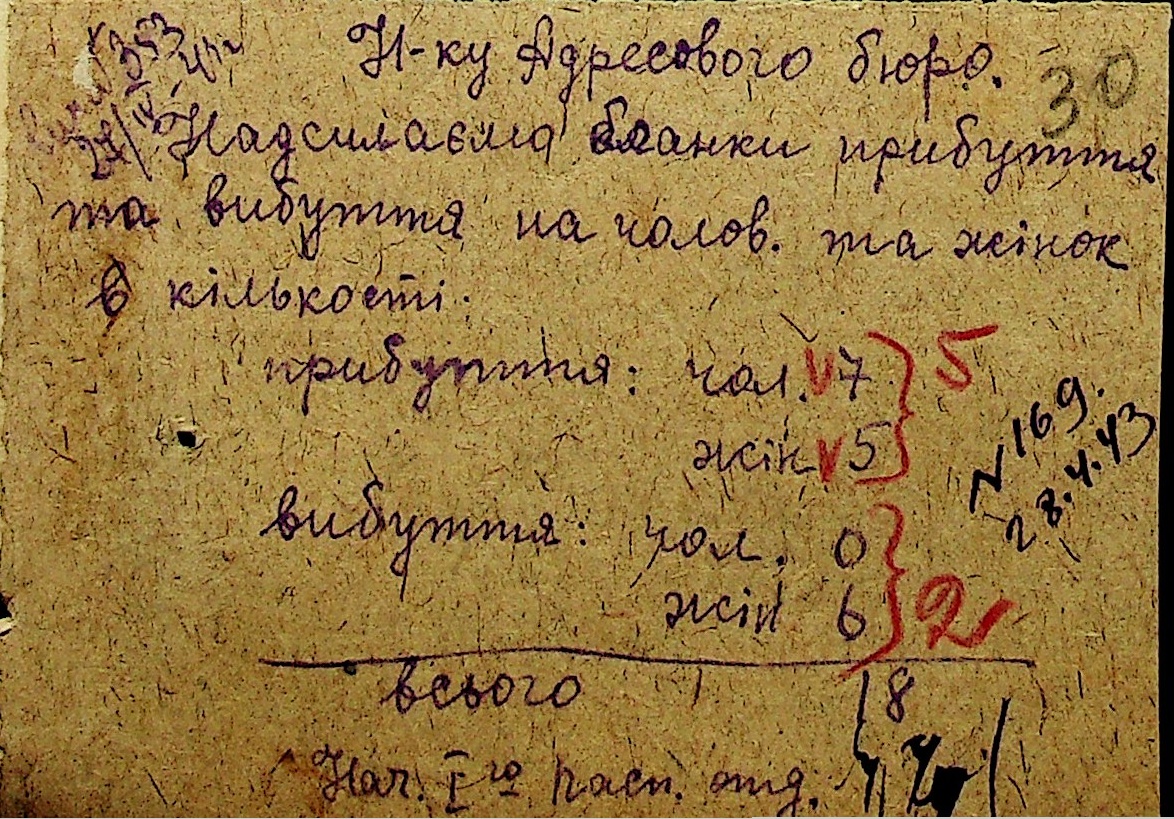 Н-ку Адресового бюро.
30
Надсилаємо бланки прибуття
та вибуття на чолов. та жінок
в кількості.
прибуття: чол. V 7 } 5
жін V 5
N 169.
28.4.43
вибуття: чол. 0 } 2
жін 6
всього 18
Нач. I го Пасп. отд.